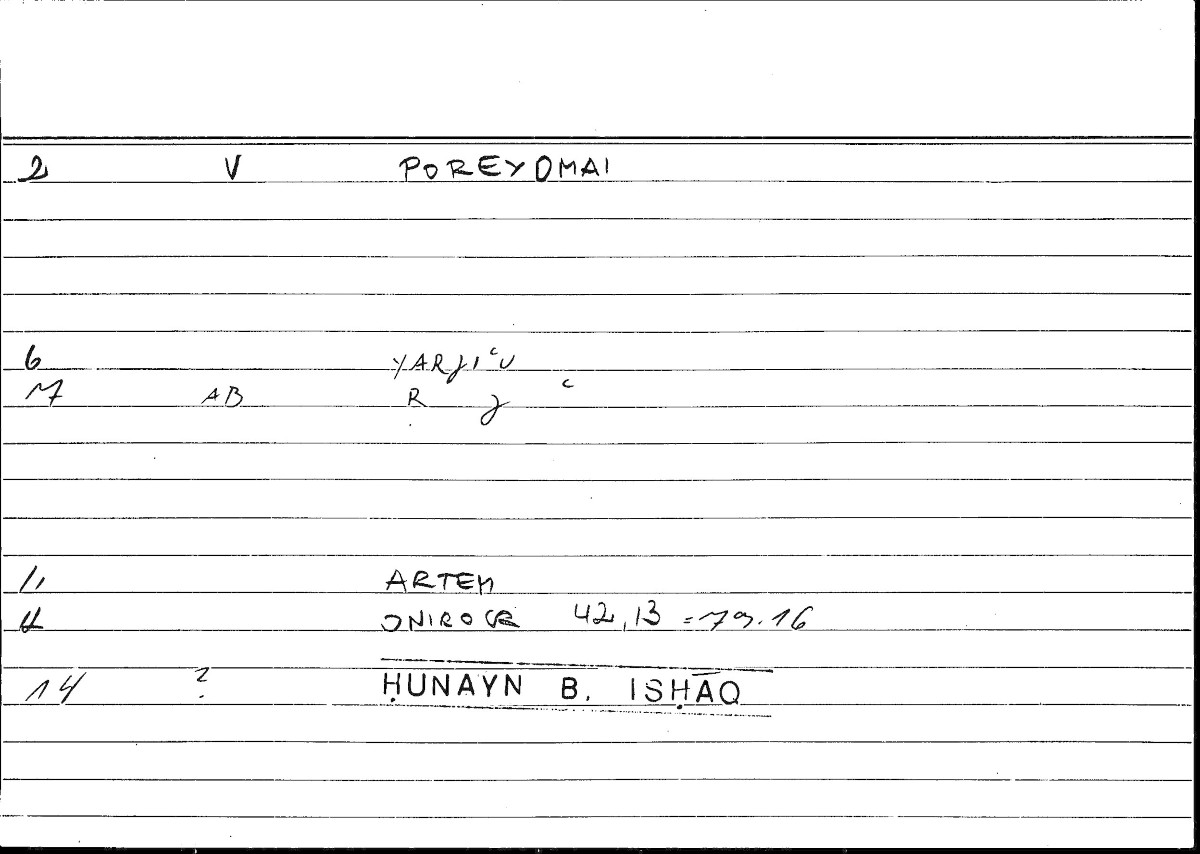 2 V POREYOMAI
6 YARJIʿU
7 AB R J ʿ
11 ARTEM
12 ONIROCR 42,13 = 79.16
14 ? ḤUNAYN B. ISḤĀQ